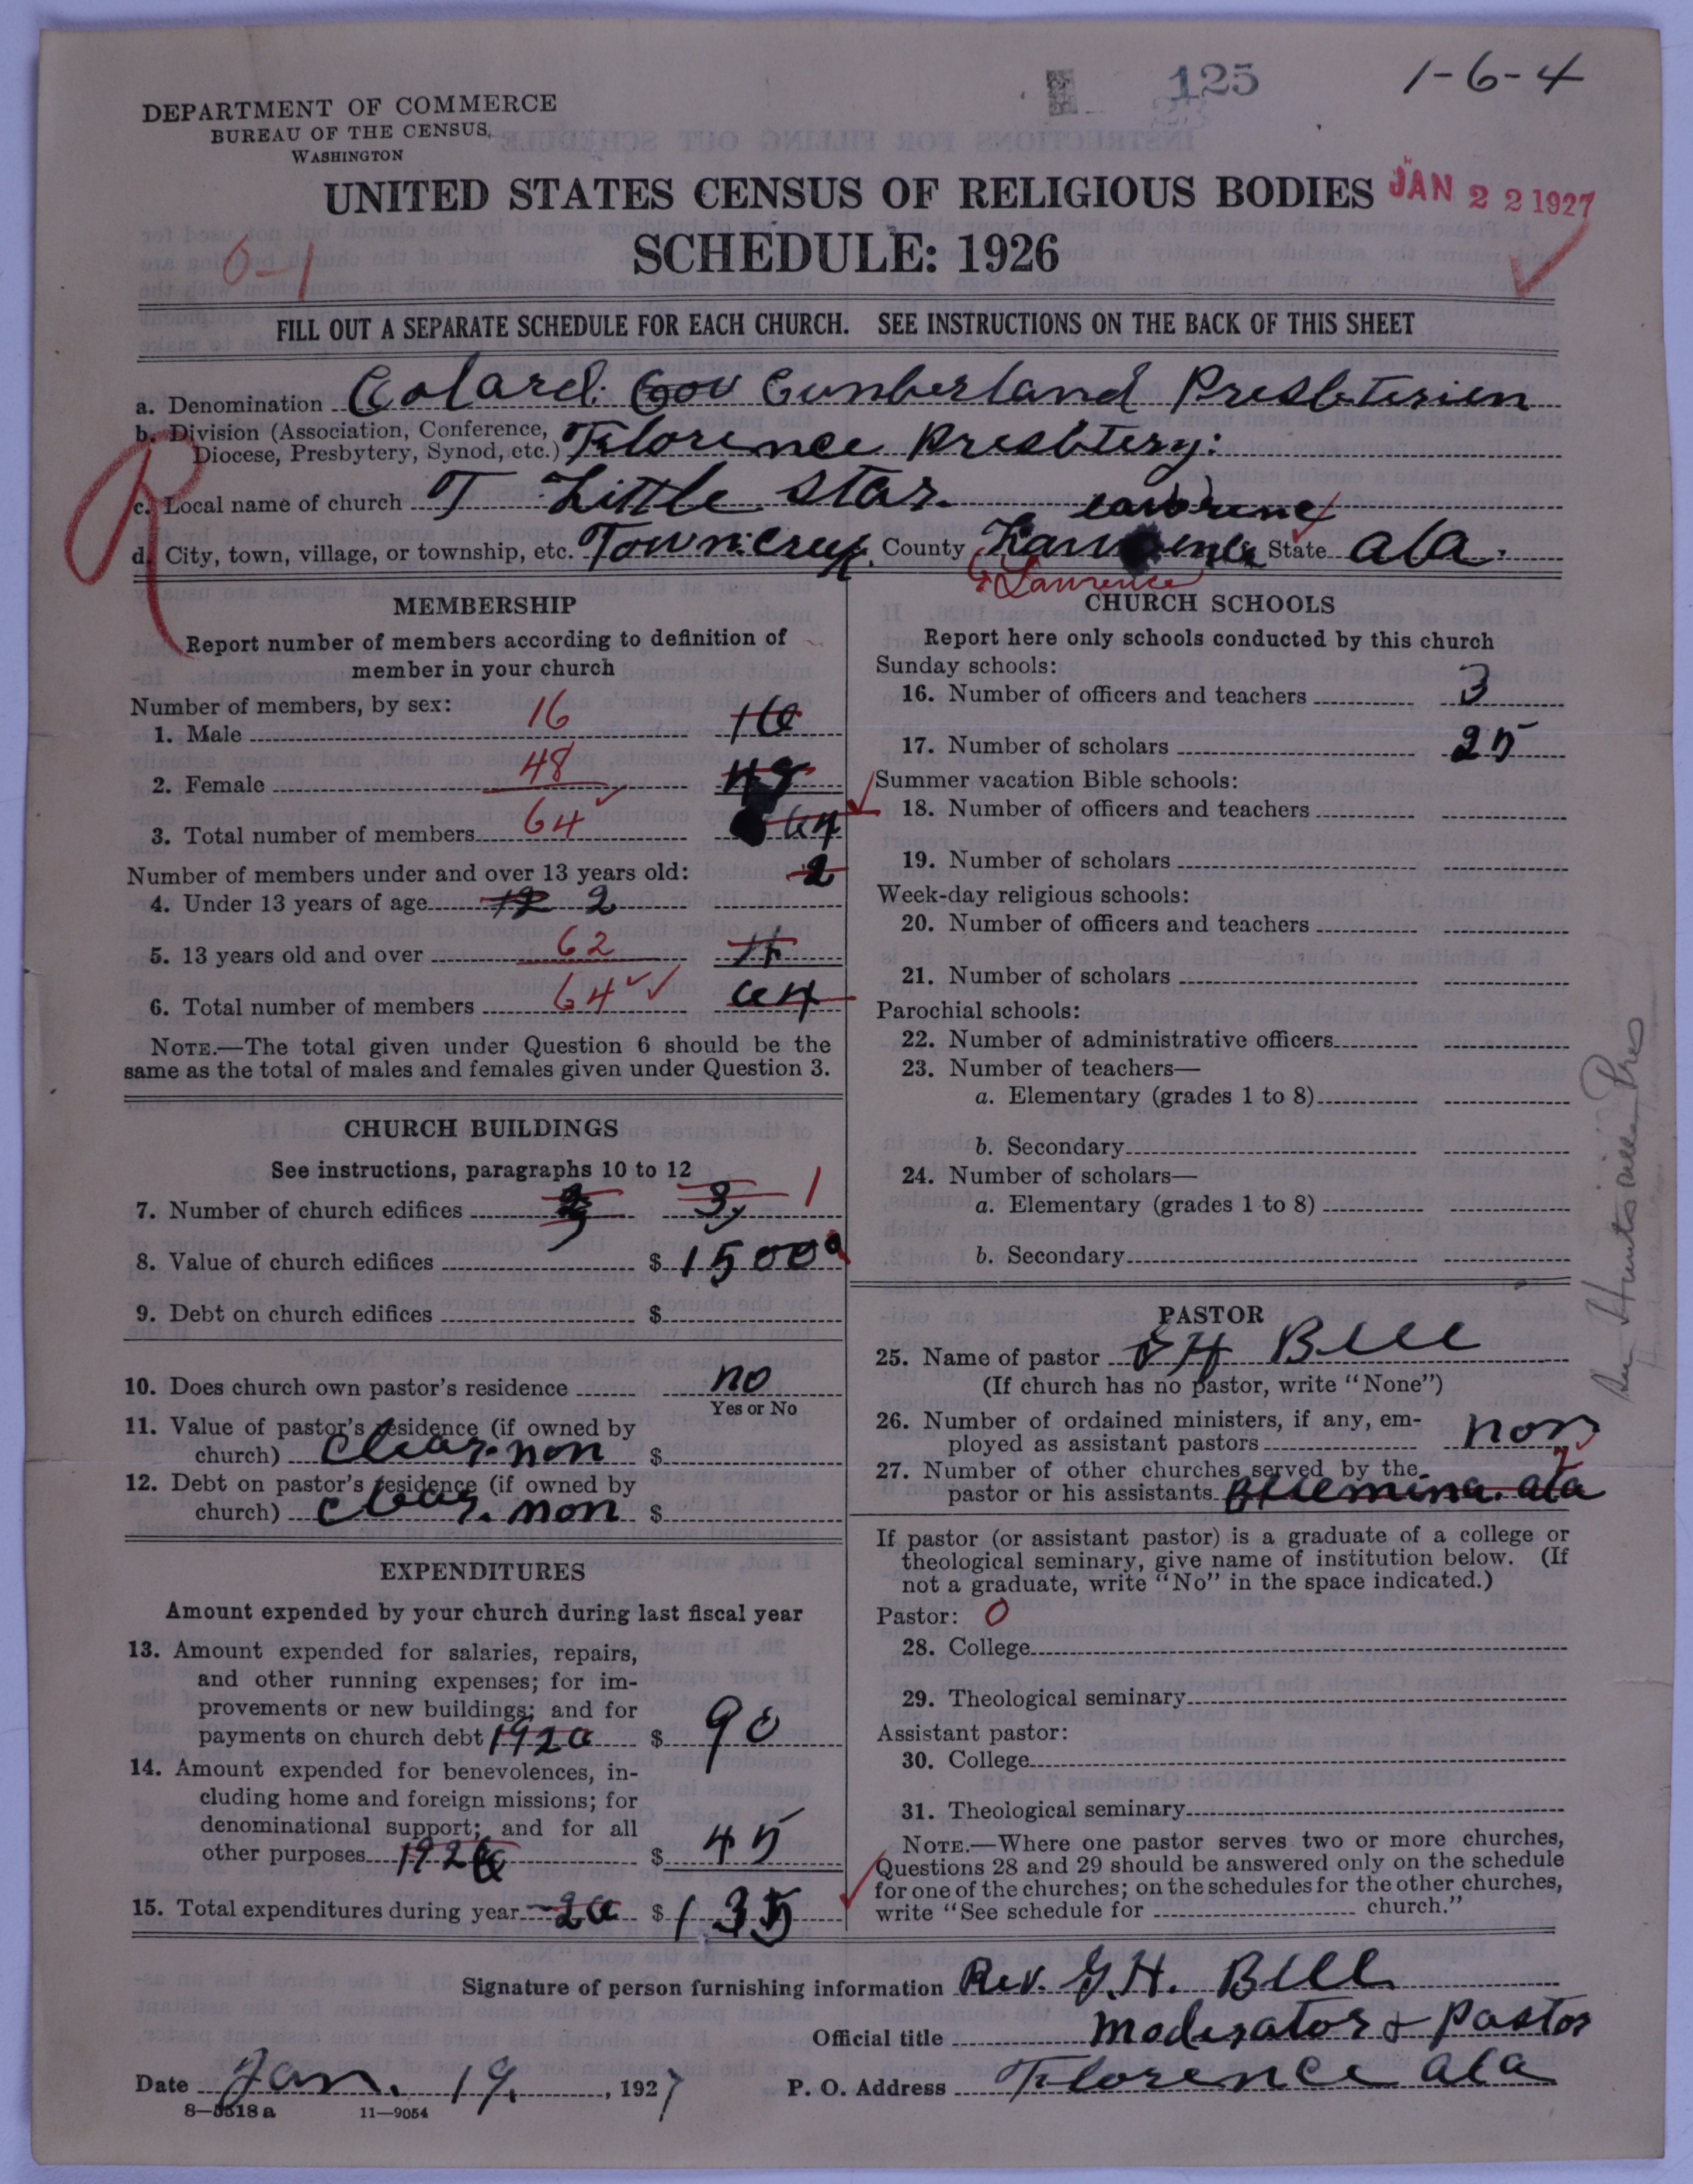 125
1-6-4
DEPARTMENT OF COMMERCE
BUREAU OF THE CENSUS
WASHINGTON
UNITED STATES CENSUS OF RELIGIOUS BODIES
JAN 22 1927
SCHEDULE: 1926
6-1
FILL OUT A SEPARATE SCHEDULE FOR EACH CHURCH. SEE INSTRUCTIONS ON THE BACK OF THIS SHEET
a. Denomination Colard. Cov Cumberland Presbterien
b. Division (Association, Conference,
Diocese, Presbytery, Synod, etc.) Florence Presbtery:
R
c. Local name of church T Little Star.
d. City, town, village, or township, etc. Town.Creek. County Lawrence State Ala.
Lawrence
MEMBERSHIP
Report number of members according to definition of
member in your church
Number of members, by sex:
1. Male 16 16
2. Female 48 48
3. Total number of members 64 64
Number of members under and over 13 years old: 2
4. Under 13 years of age 12 2
5. 13 years old and over 62
6. Total number of members 64 64
NOTE.—The total given under Question 6 should be the
same as the total of males and females given under Question 3.
CHURCH BUILDINGS
See instructions, paragraphs 10 to 12
7. Number of church edifices 3 1
8. Value of church edifices $ 1500
9. Debt on church edifices $
10. Does church own pastor's residence no
Yes or No
11. Value of pastor's residence (if owned by
church) Clear. non $
12. Debt on pastor's residence (if owned by
church) Clear. non $
EXPENDITURES
Amount expended by your church during last fiscal year
13. Amount expended for salaries, repairs,
and other running expenses; for im-
provements or new buildings; and for
payments on church debt 1926 $ 90
14. Amount expended for benevolences, in-
cluding home and foreign missions; for
denominational support; and for all
other purposes 1926 $ 45
15. Total expenditures during year 26 $ 135
CHURCH SCHOOLS
Report here only schools conducted by this church
Sunday schools:
16. Number of officers and teachers 3
17. Number of scholars 25
Summer vacation Bible schools:
18. Number of officers and teachers
19. Number of scholars
Week-day religious schools:
20. Number of officers and teachers
21. Number of scholars
Parochial schools:
22. Number of administrative officers
23. Number of teachers—
a. Elementary (grades 1 to 8)
b. Secondary
24. Number of scholars—
a. Elementary (grades 1 to 8)
b. Secondary
PASTOR
25. Name of pastor H Bell
(If church has no pastor, write "None")
26. Number of ordained ministers, if any, em-
ployed as assistant pastors non
27. Number of other churches served by the
pastor or his assistants Ala
If pastor (or assistant pastor) is a graduate of a college or
theological seminary, give name of institution below. (If
not a graduate, write "No" in the space indicated.)
Pastor: 0
28. College
29. Theological seminary
Assistant pastor:
30. College
31. Theological seminary
NOTE.—Where one pastor serves two or more churches,
Questions 28 and 29 should be answered only on the schedule
for one of the churches; on the schedules for the other churches,
write "See schedule for church."
Signature of person furnishing information Rev. G.H. Bell
Official title Moderator & Pastor
Date Jan. 19, 1927 P. O. Address Florence Ala
8—5518a 11—9054